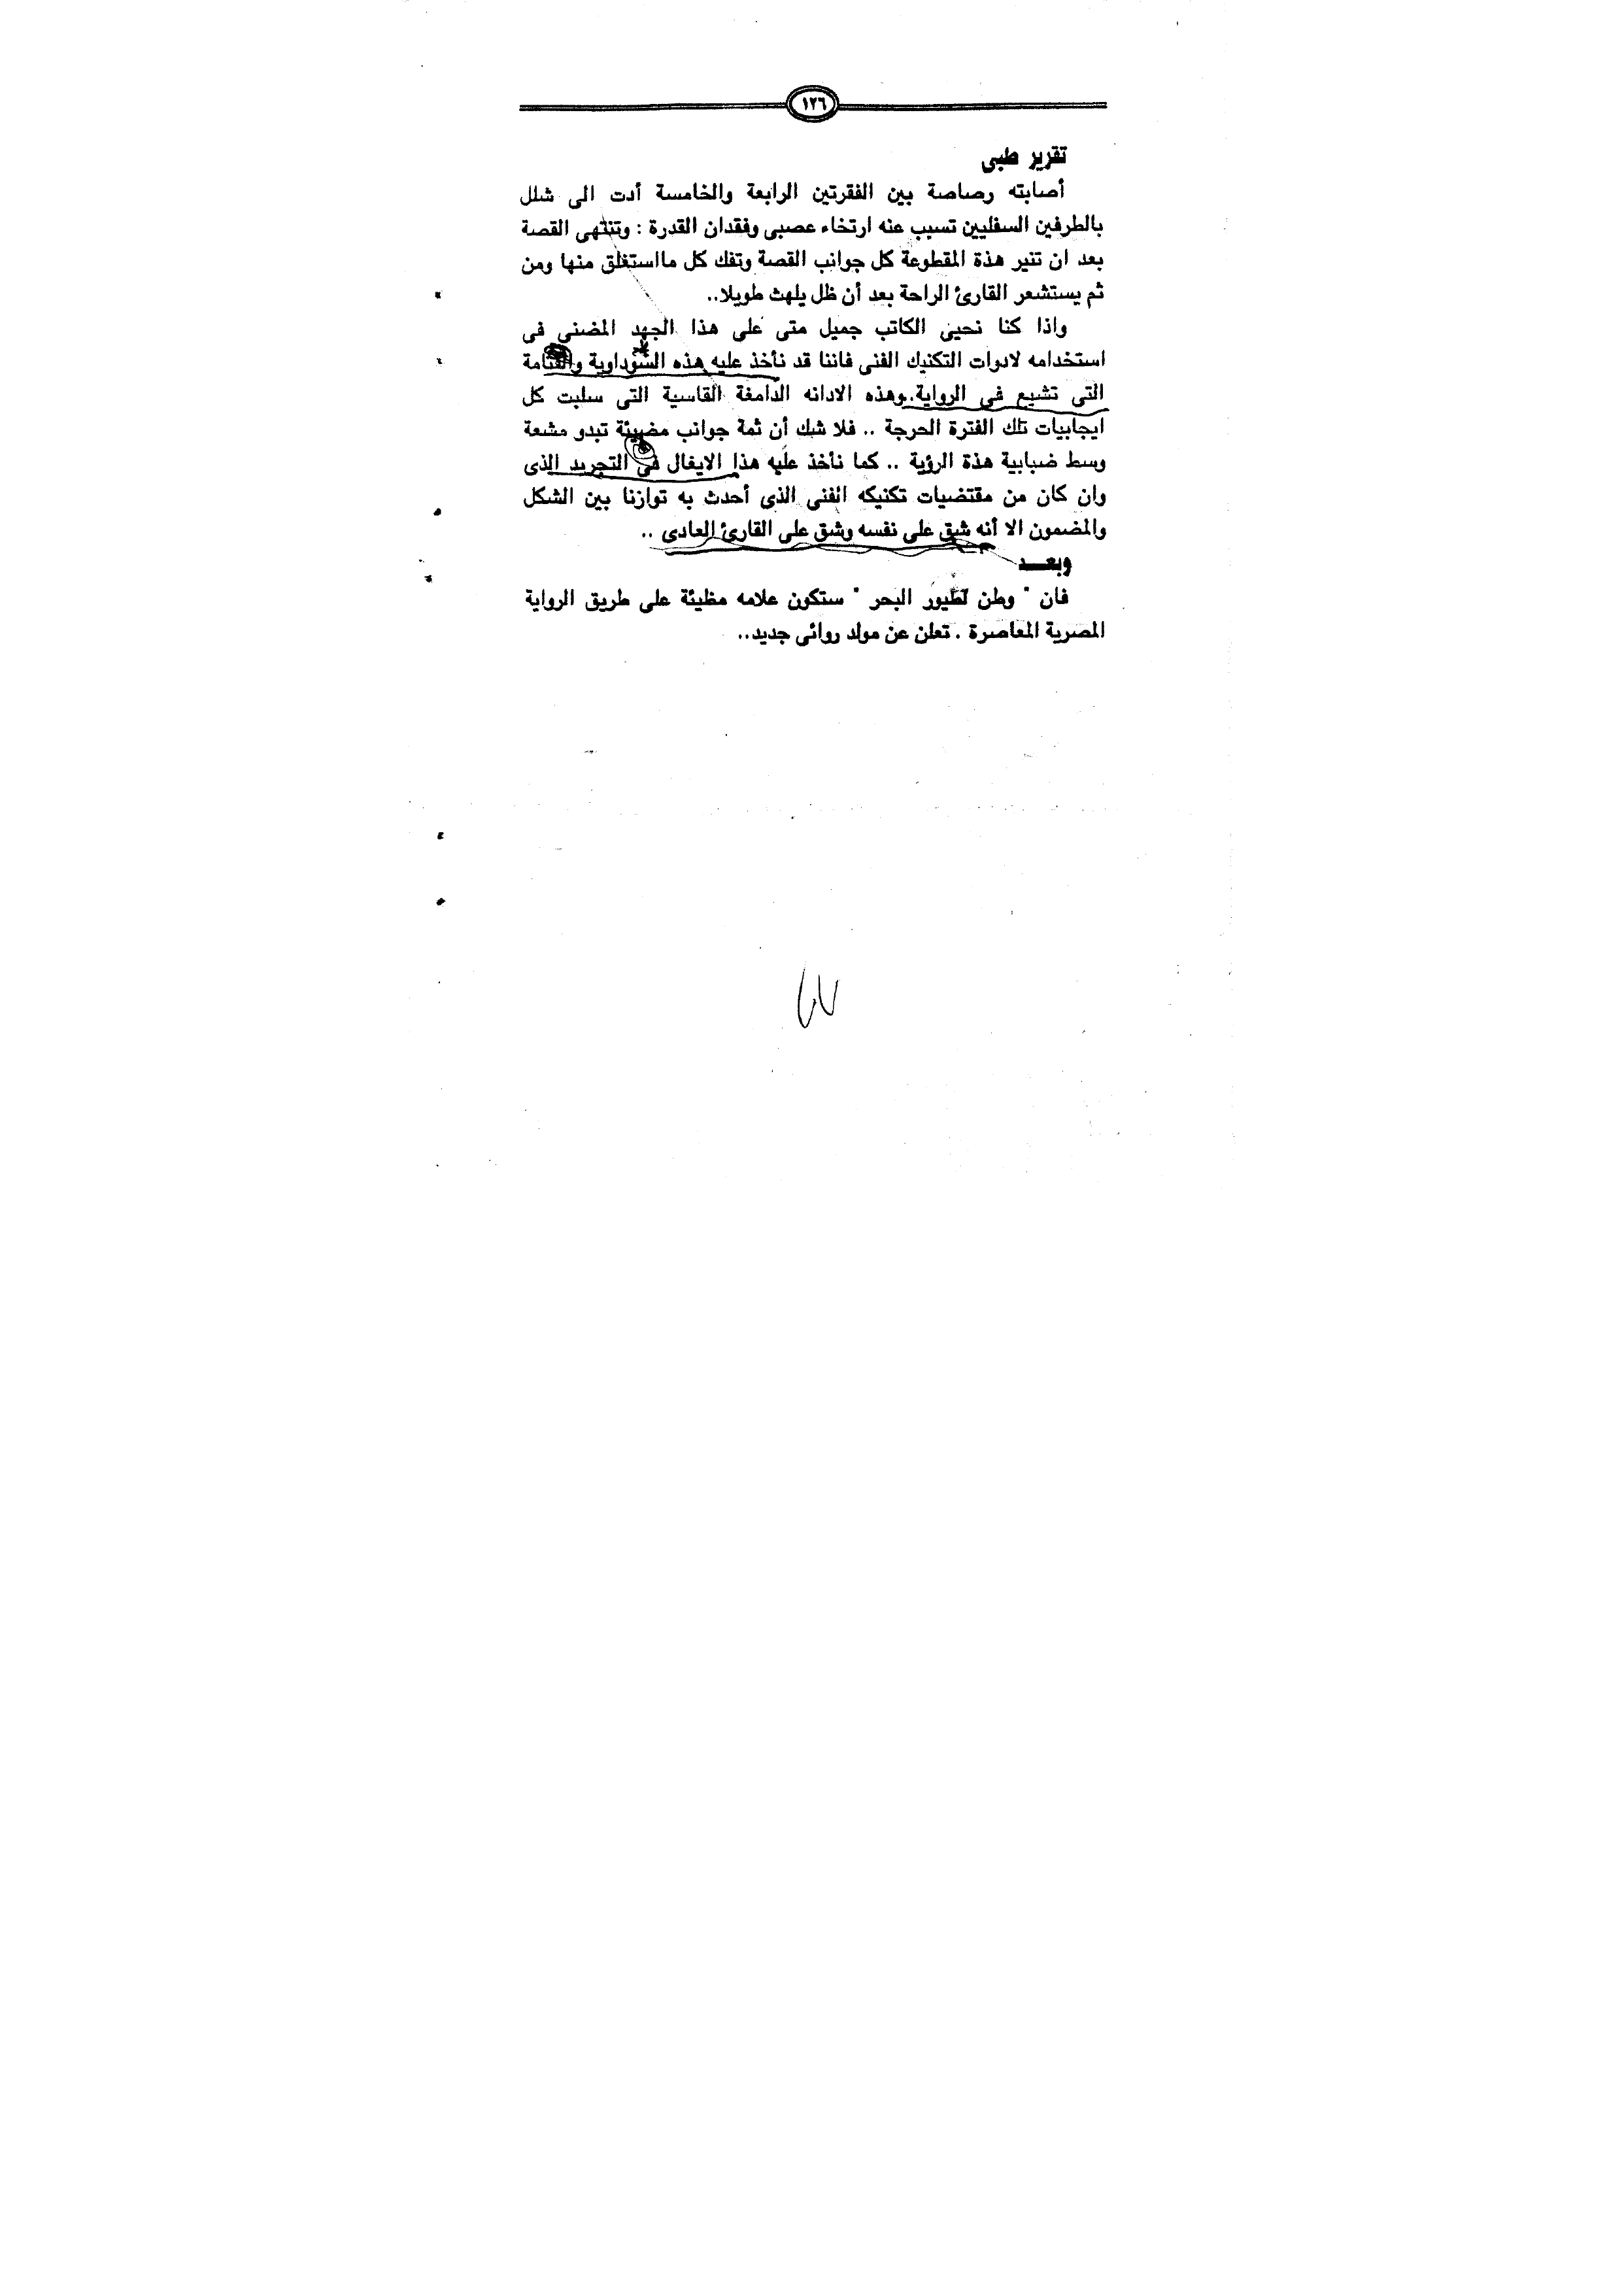 ١٢٦
تقرير طبى
أصابته رصاصة بين الفقرتين الرابعة والخامسة أدت الى شلل
بالطرفين السفليين تسبب عنه ارتخاء عصبى وفقدان القدرة : وتنتهى القصة
بعد ان تنير هذة المقطوعة كل جوانب القصة وتفك كل مااستغلق منها ومن
ثم يستشعر القارئ الراحة بعد أن ظل يلهث طويلا..
واذا كنا نحيى الكاتب جميل متى على هذا الجهد المضنى فى
استخدامه لادوات التكنيك الفنى فاننا قد نأخذ عليه هذه السوداوية والقتامة
التى تشيع فى الرواية..وهذه الادانه الدامغة القاسية التى سلبت كل
ايجابيات تلك الفترة الحرجة .. فلا شك أن ثمة جوانب مضيئة تبدو مشعة
وسط ضبابية هذة الرؤية .. كما نأخذ عليه هذا الايغال فى التجريد الذى
وان كان من مقتضيات تكنيكه الفنى الذى أحدث به توازنا بين الشكل
والمضمون الا أنه شق على نفسه وشق على القارئ العادى ..
وبعــد
فان " وطن لطيور البحر " ستكون علامه مظيئة على طريق الرواية
المصرية المعاصرة . تعلن عن مولد روائى جديد..